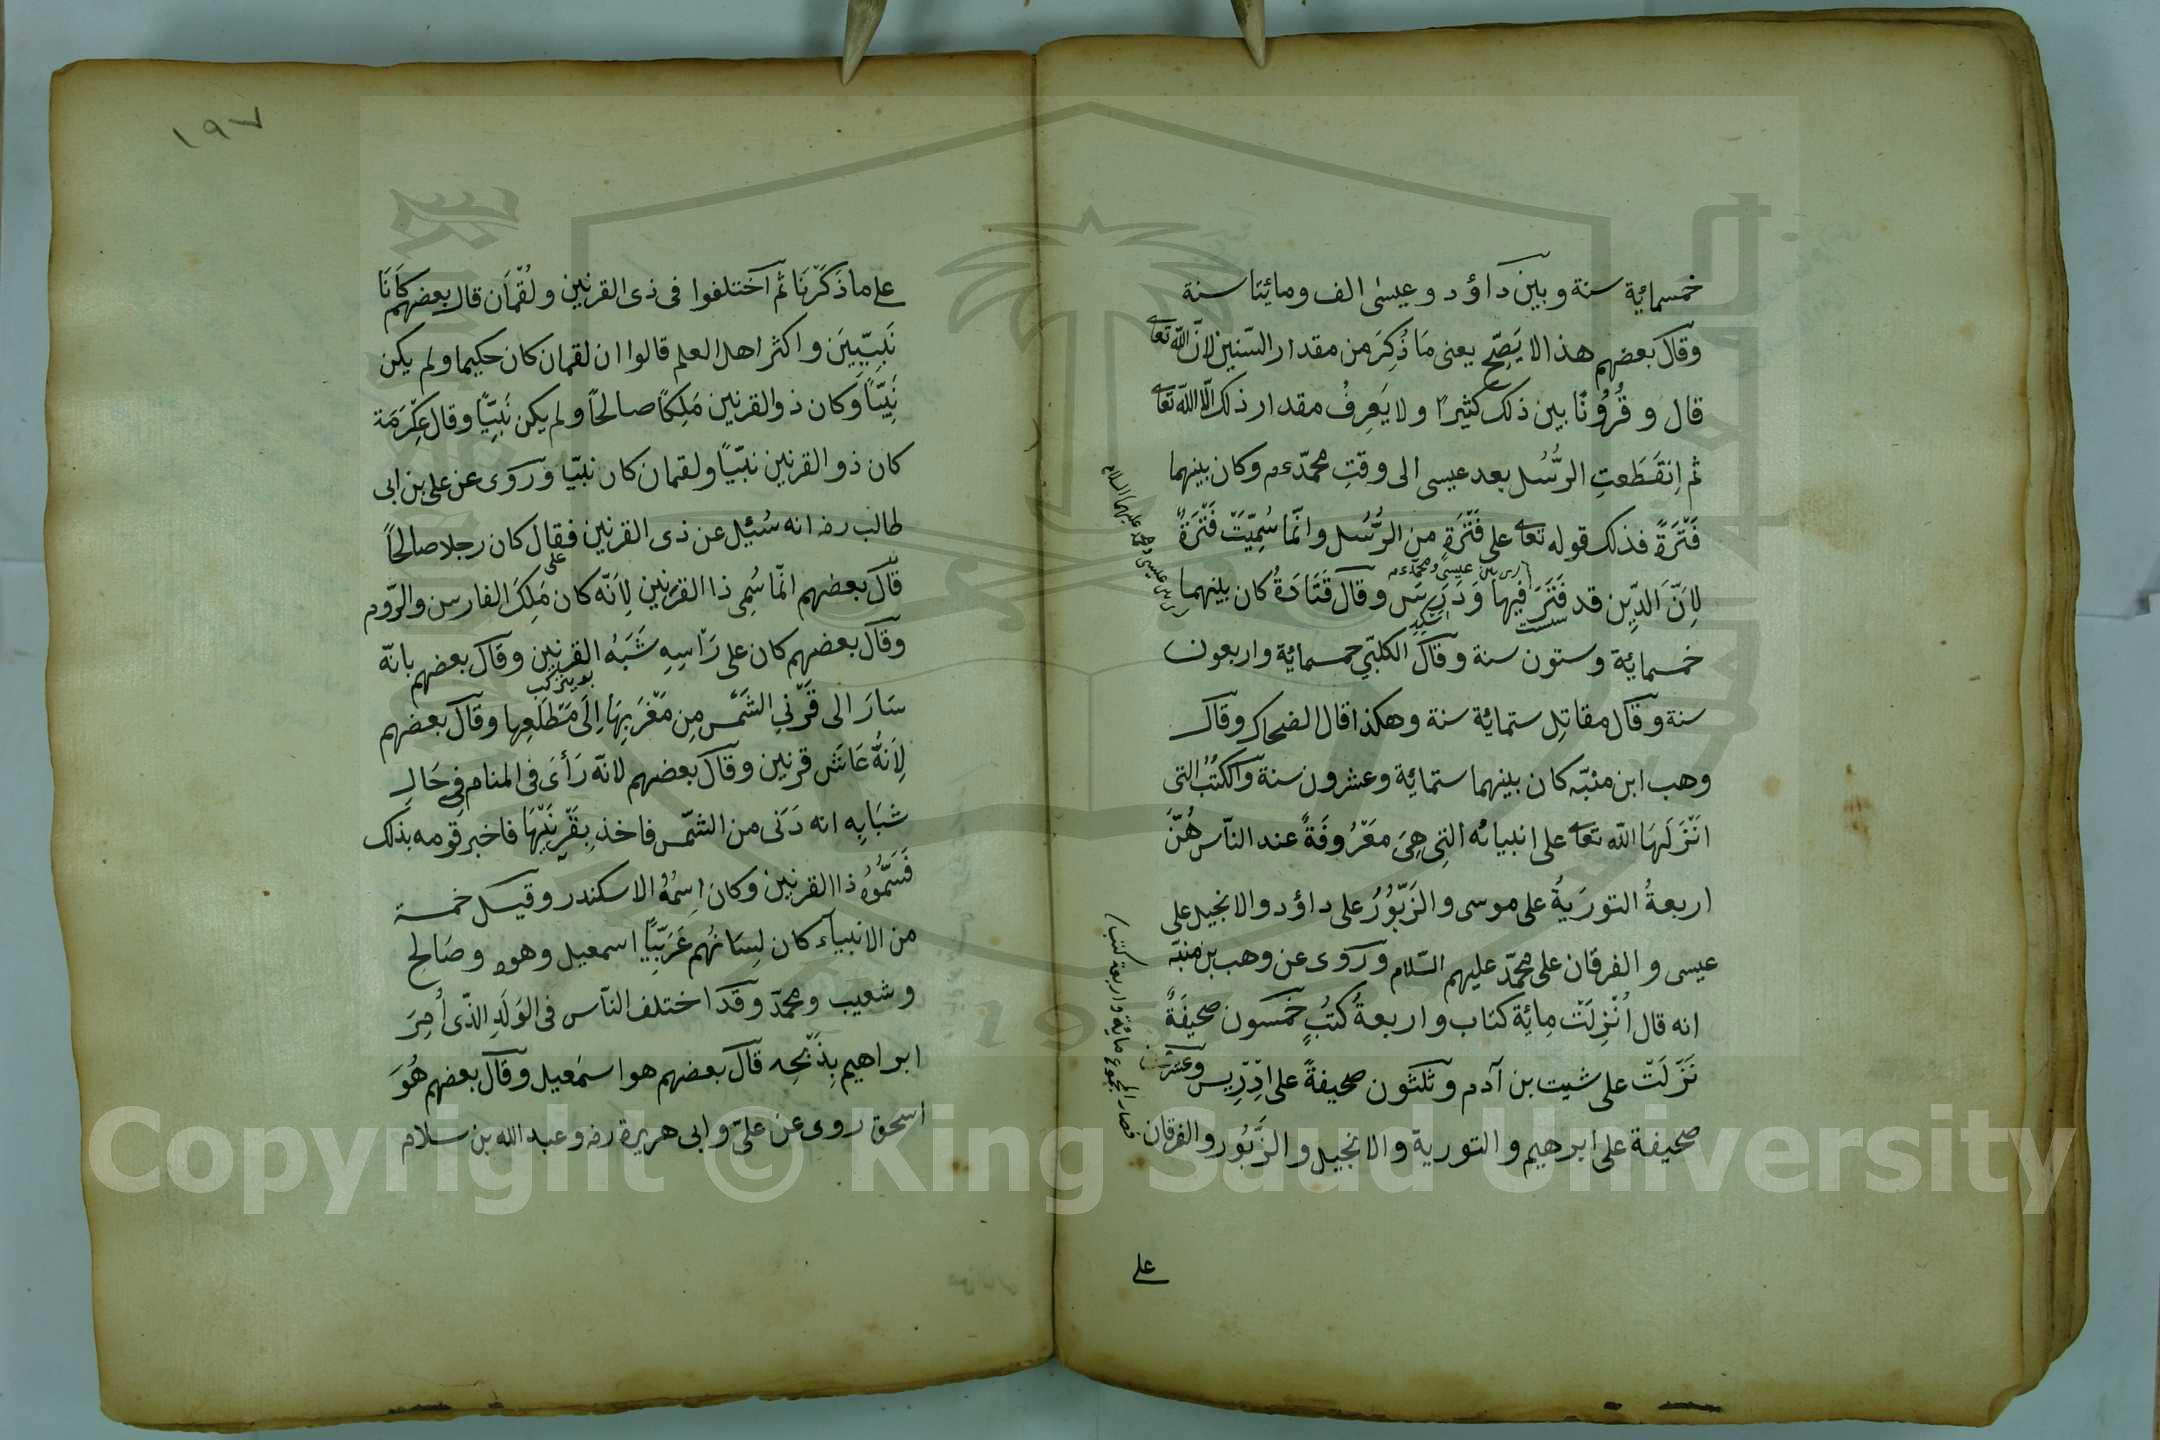 خمسمائة سنة وبين داؤد وعيسى الف ومائتا سنة
وقال بعضهم هذا لا يَصِّح يعنى مَا ذُكِرَ من مقدار السّنين لانّ اللّه تعالى
قال وقُرُونًا بين ذلك كثيرًا ولا يَعرِفُ مقدار ذلك الّا اللّه تعالى
ثم اِنقَطَعتِ الرُّسُل بعد عيسى الى وقتِ محمّد ءم وكان بينهما
فَتْرَةً فذلك قوله تعالى على فَتْرَةٍ من الرُّسُل وانّما سُمِّيَتْ فَتْرَةً
اى بين عيسى ومحمّد ءم
لِاَنَّ الدِّين قد فَتَرَ فيها وَدَرَسَ وقال قَتَادَةُ كان بينهما
خمسمائة وستون سنة وقال الكلبّي خمسمائة واربعون
سنة وقال مقاتِل ستمائة سنة وهكذا قال الضحاك وقال
وهب ابن منبّه كان بينهما ستمائة وعشرون سنة والكُتُبُ التى
انَزَلَهَا اللّه تعالى على انبيائه التِى هِىَ مَعْرُوفَةً عند النّاس هُنَّ
اربعةُ التورَيةُ على موسى والزَبُّوُرُ على داؤد والانجيل على
عيسى والفرقان على محمّد عليهم السّلام ورَوى عن وهب بن منبّه
انه قال اُنْزِلَتْ مِائِة كتاب واربعةُ كُتُبٍ خَمسون صحيفَةً
نَزَلَتْ على شيت بن آدم وثلثون صحيفةً على اِدْرِيس وعشرون
صحيفة على ابرهيم والتورية والانجيل والزَّبُور والفرقان
بين عيسى ومحمّد عليهما السلام
فصار المجموع مائة واربعة كتب
على
١٩٧
على ما ذَكَرْنَا ثمّ آختلفوا فى ذى القرنين ولُقْمَان قال بعضهم كَانَا
نَبِيّيِنَ واكثر اهل العلم قالوا ان لقمان كان حكيما ولم يكن
نَبِيّاً وَكان ذو القرنين مَلِكًا صالحًا ولم يكن نَبِيًّا وقال عِكْرَمَة
كان ذو القرنين نبيّاً ولقمان كان نبيّا ورَوى عن على بن ابى
طالب رضه انه سُئِيل عن ذى القرنين فقال كان رجلا صالحًا
على
قال بعضهم انّما سُمِى ذا القرنين لِاَنّه كان مَلِكَ الفارس والرّوم
وقال بعضهم كان على رَاْسِهِ شَبَهُ القرنين وقال بعضهم بانّه
سَارَ الى قَرْنَىِ الشَمْس مِن مَغْرَبِهَا اِلَى مَطْلَعِها وقال بعضهم
لِاَنَّهُ عَاشَ قرنين وقال بعضهم لانّه رَأىَ فى المنام فِى حَالِ
شبَابِه انه دَنَى من الشمّس فاخذ بِقَرْنَيْهَا فاخبر قومه بذلك
فَسَمُّوهُ ذا القرنين وكان اِسمُهُ الاسكندر وقيل خمسة
من الانبيآء كان لِسَانُهُم عَرَبِيًّا اسمعيل وهود وصَالِح
وشعيب ومحمدّ وقد اختلف النّاس فى الوَلَدِ الذّى اُمِرَ
ابراهيم بِذَبْحِه قال بعضهم هو اسمْعيل وقال بعضهم هُوَ
اسحق روى عن علىّ وابى هريرة رضه وعبد الله بن سلام
Copyright © King Saud University